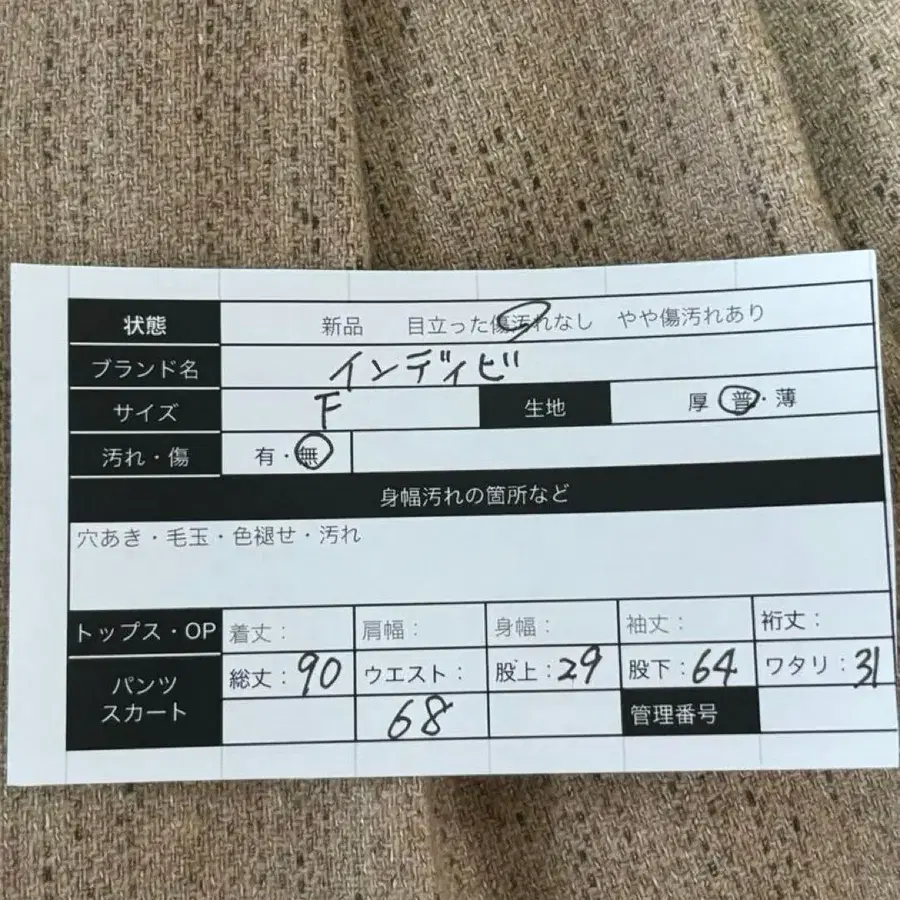 状態 新品 目立った傷汚れなし やや傷汚れあり
ブランド名 インディビ
サイズ F 生地 厚・普・薄
汚れ・傷 有・無
身幅汚れの箇所など
穴あき・毛玉・色褪せ・汚れ
トップス・OP 着丈： 肩幅： 身幅： 袖丈： 裄丈：
パンツ 総丈：90 ウエスト： 股上：29 股下：64 ワタリ：31
スカート 68 管理番号